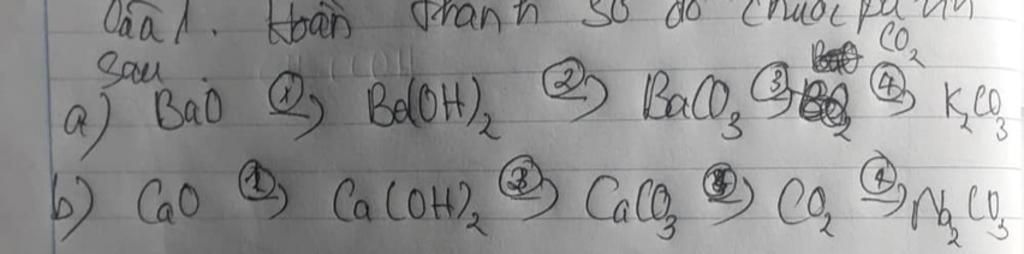 Câu 1. Hoàn thành sơ đồ chuỗi
sau
a) BaO ①→ Ba(OH)₂ ②→ BaCO₃ ③→ CO₂ ④→ K₂CO₃
b) CaO ①→ Ca(OH)₂ ②→ CaCO₃ ③→ CO₂ ④→ Na₂CO₃